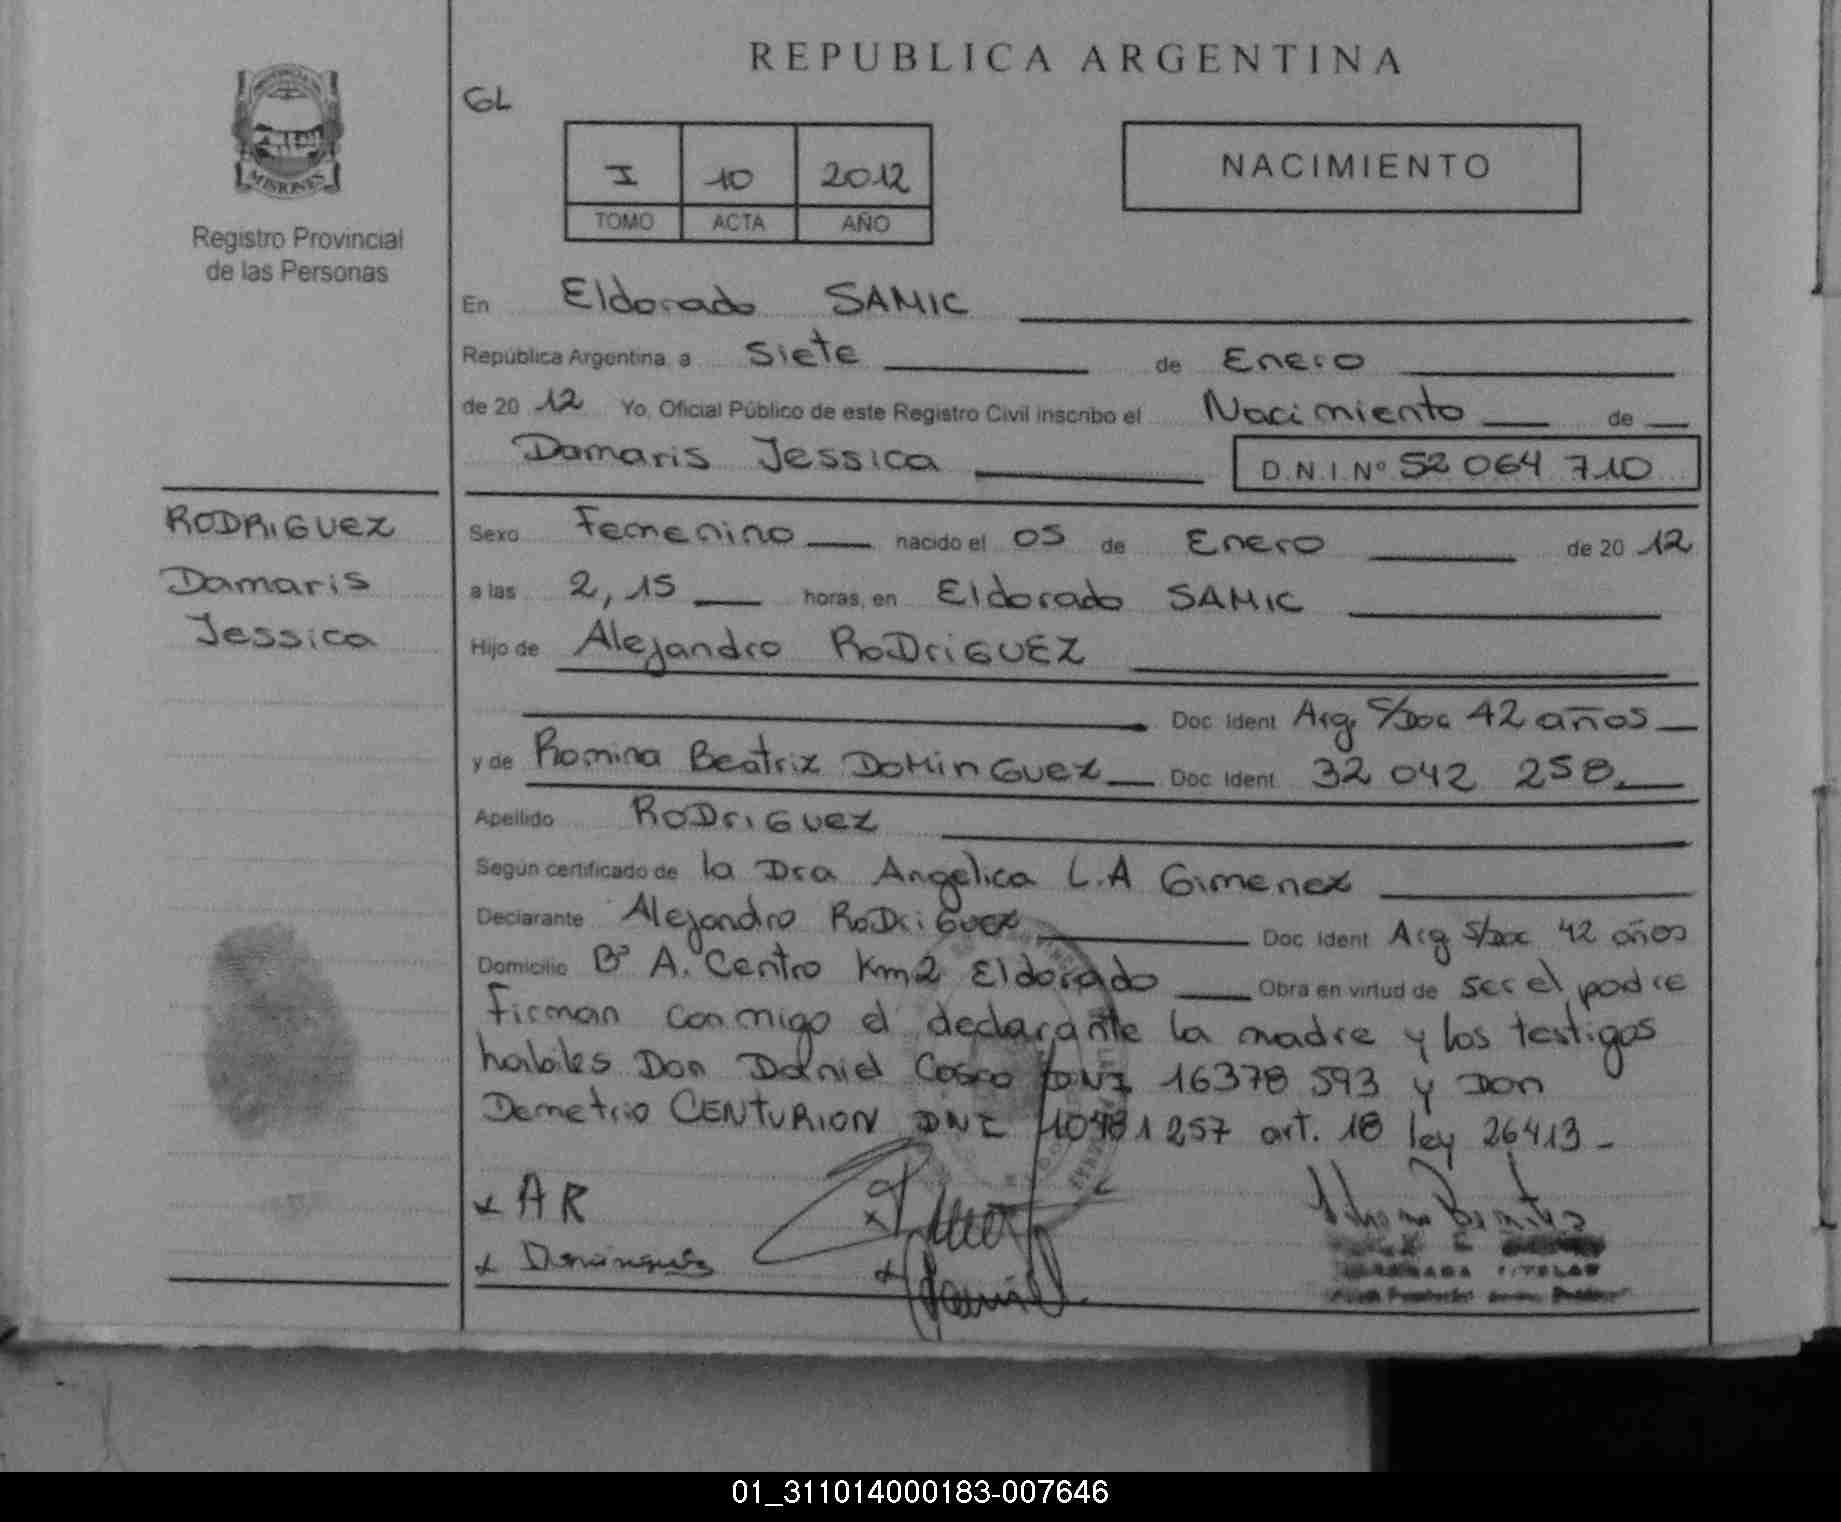 REPUBLICA ARGENTINA
MISIONES
Registro Provincial
de las Personas
GL
I 10 2012
TOMO ACTA AÑO
NACIMIENTO
En Eldorado SAMIC
República Argentina, a Siete de Enero
de 20 12 Yo, Oficial Público de este Registro Civil inscribo el Nacimiento de
Damaris Jessica D.N.I. Nº 52 064 710
RODRIGUEZ
Damaris
Jessica
Sexo Femenino nacido el 05 de Enero de 20 12
a las 2,15 horas, en Eldorado SAMIC
Hijo de Alejandro RODRIGUEZ
Doc. Ident. Arg. S/Doc 42 años
y de Romina Beatriz DOMINGUEZ Doc. Ident. 32 042 258
Apellido RODRIGUEZ
Según certificado de la Dra Angelica L.A Gimenez
Declarante Alejandro RODRIGUEZ Doc. Ident. Arg S/Doc 42 años
Domicilio Bº A. Centro Km2 Eldorado Obra en virtud de ser el padre
Firman conmigo el declarante la madre y los testigos
habiles Don Daniel DNI 16378 593 y Don
Demetrio CENTURION DNI 257 art. 18 ley 26413 -
x AR
x Dominguez
TITULAR
01_311014000183-007646